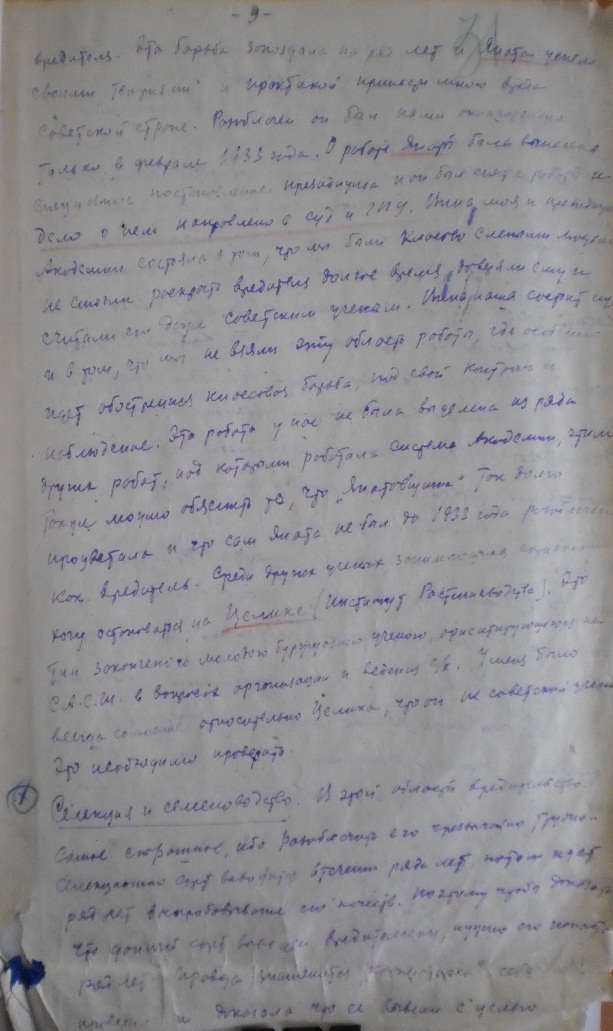 - 9 -
вредителя. Эта борьба запоздала на ряд лет и Яната успел
своими "теориями" и практикой принести много вреда
Советской стране. Разоблачен он был нами окончательно
только в феврале 1933 года. О работе Янаты была вынесена
специальное постановление президиума и он был снят с работы и
дело о нем направлено в суд и ГПУ. Вина моя и президиума
Академии состояла в том, что мы были классово слепыми
не смогли раскрыть вредителя долгое время, доверяли ему и
считали его даже советским ученым. Вина наша состоит еще
и в том, что мы не взяли эту область работы, где особенно
идет обостренная классовая борьба, под свой контроль и
наблюдение. Эта работа у нас не была выделена из ряда
других работ, над которыми работала система Академии, этим
только можно объяснить то, что "Янатовщина" так долго
процветала и что сам Яната не был до 1933 года разоблачен
как вредитель. Среди других ученых
хочу остановиться на Целике (Институт Растениеводства). Это
тип законченого молодого буржуазного ученого, ориентирующегося на
С.А.С.Ш. в вопросах организации и ведения с/х. У меня было
всегда сомнение относительно Целика, что он не советский ученый
Это необходимо проверить.
Селекция и семеноводство. В этой области вредительство
самое страшное, ибо разоблачить его чрезвычайно трудно.
Селекционный сорт выводится в течении ряда лет, потом идет
ряд лет его качеств. Поэтому чтобы доказать
что данный сорт выведен вредительски, нужно его
ряд лет. Правда знаменитая себя
и доказала что ее вывели с целью